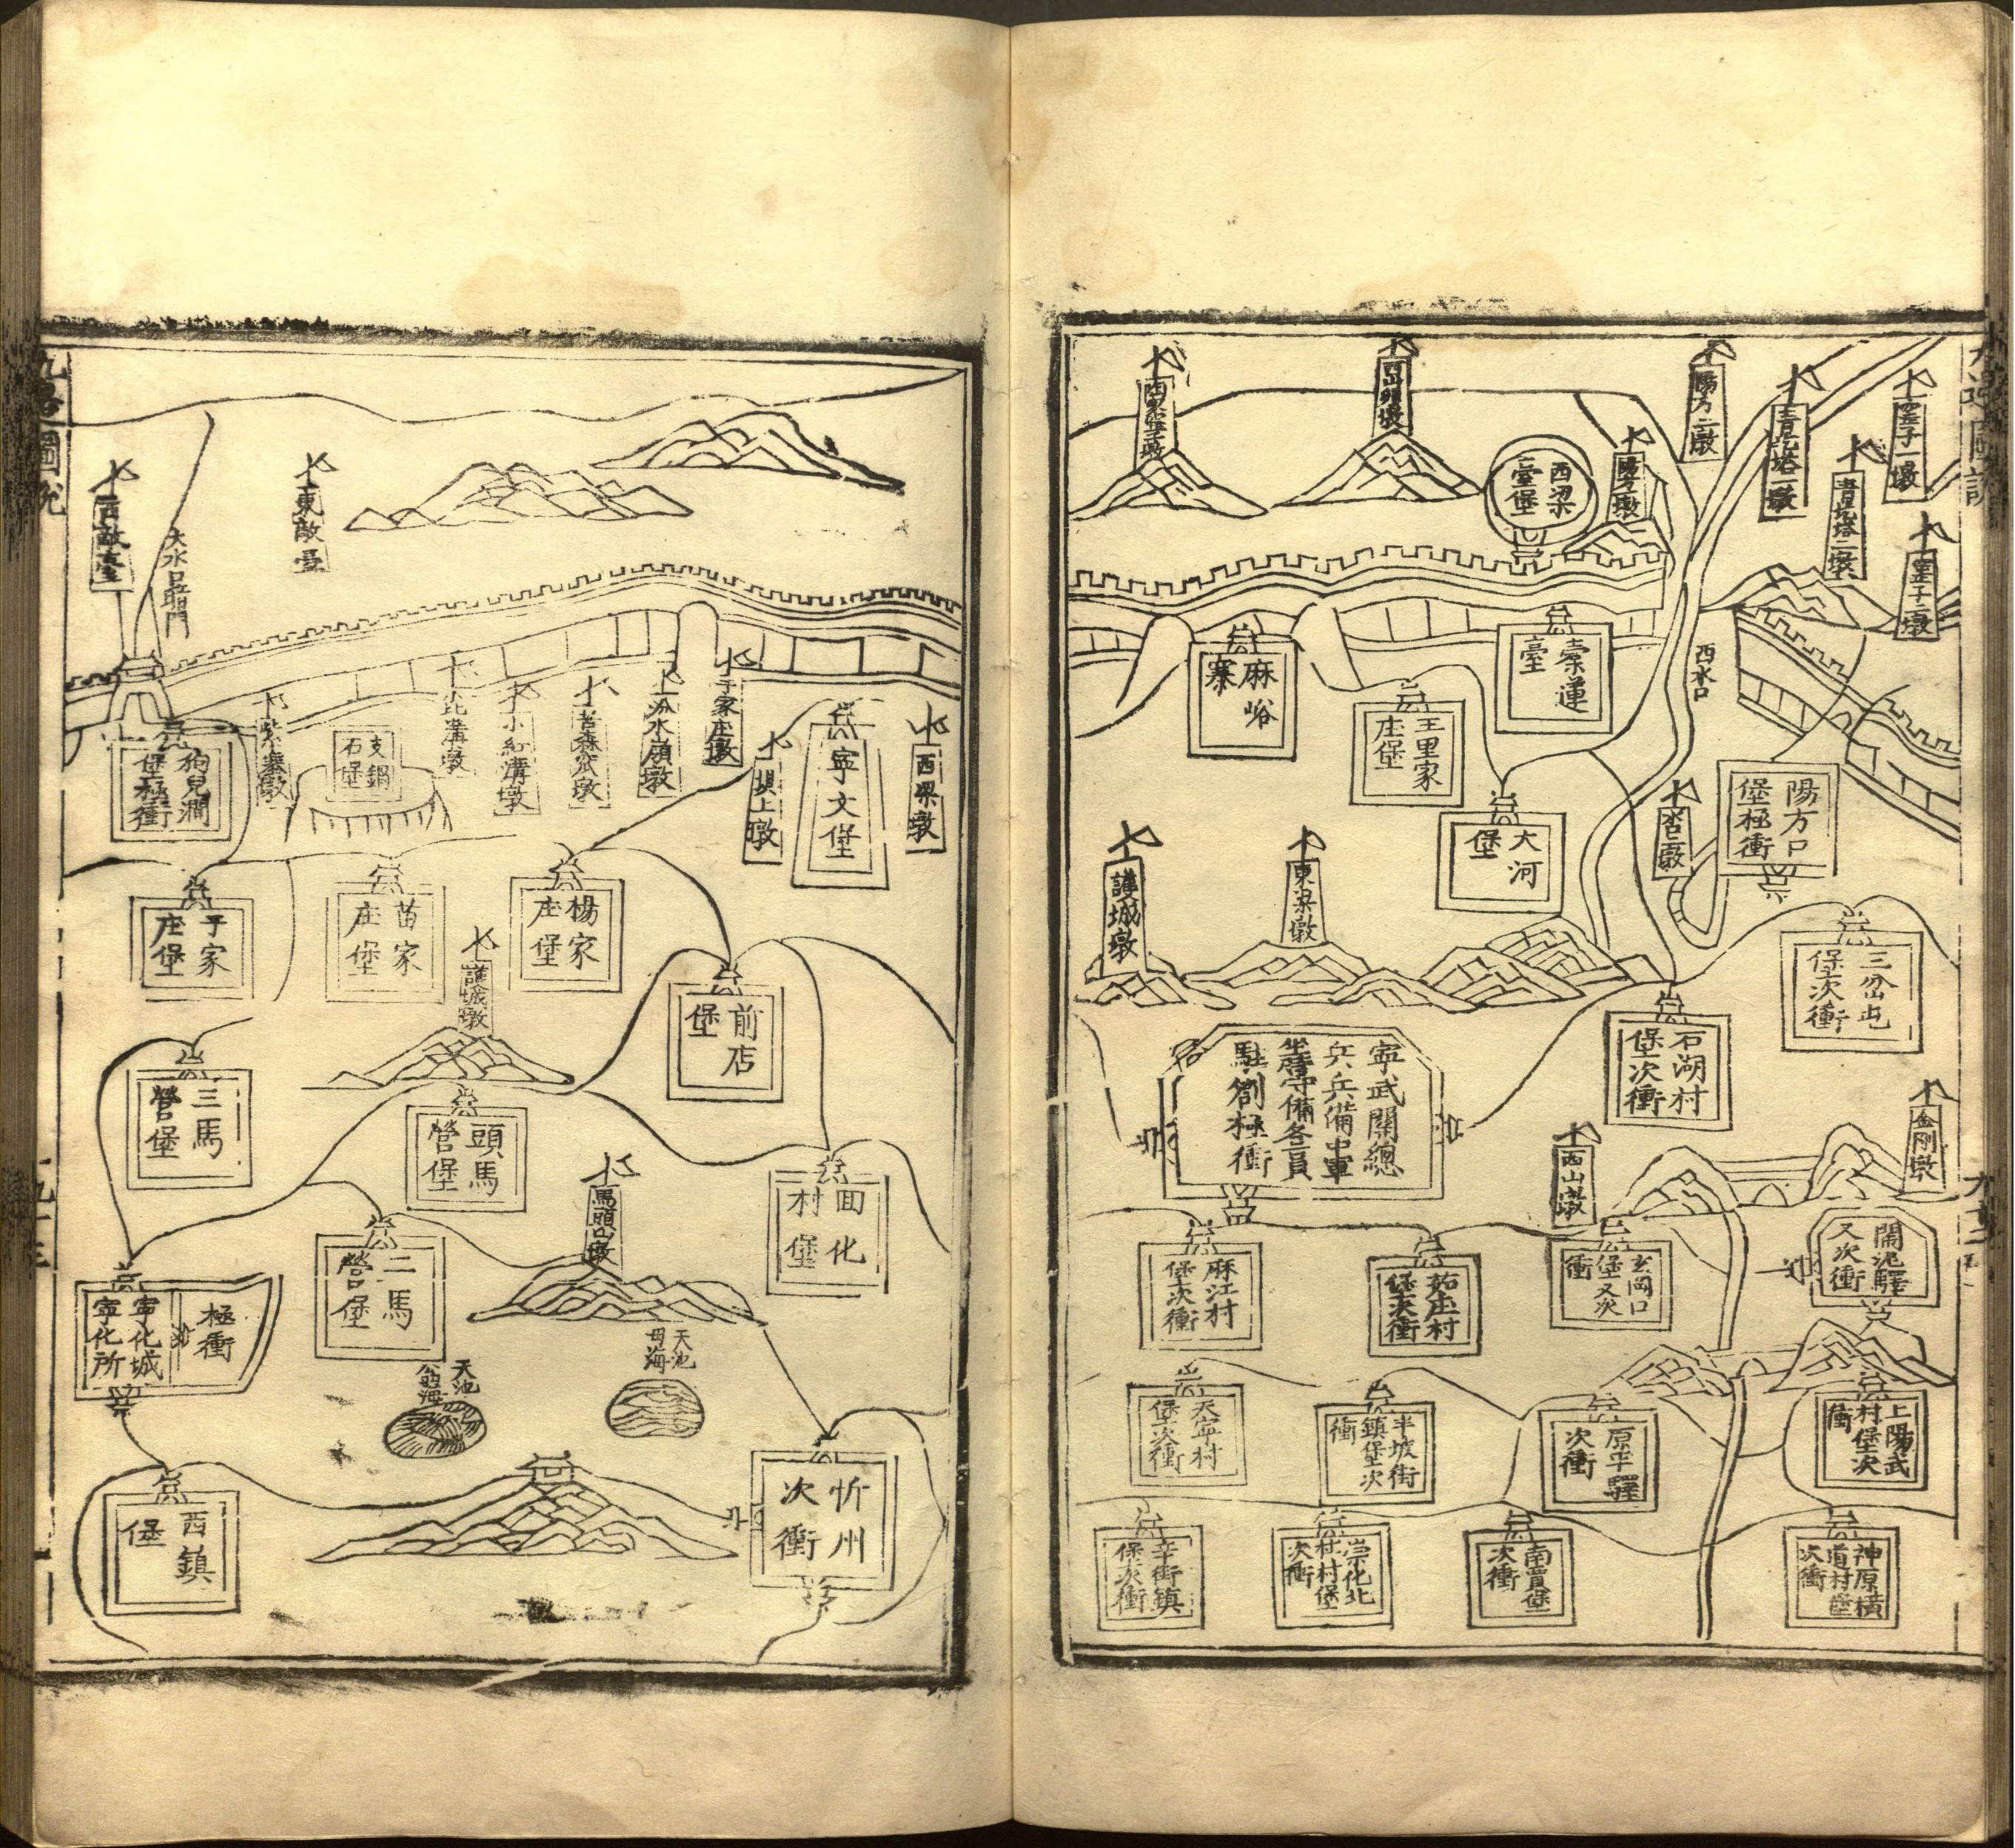 墩
西梁
臺堡
陽方二墩
青圪塔一墩
青圪塔二墩
西水口
麻峪
寨
王里家
庄堡
大河
堡
陽方口
堡極衝
護城墩
東梁墩
三岔屯
堡次衝
石湖村
堡次衝
寧武關總
兵兵備中軍
坐營守備各員
駐劄極衝
西山墩
金剛墩
麻江村
堡次衝
茹庄村
堡次衝
玄岡口
堡又次
衝
鬧泥驛
又次衝
天寧村
堡次衝
半坡街
鎮堡次
衝
原平驛
次衝
上陽武
村堡次
衝
辛街鎮
堡次衝
崇化北
社村堡
次衝
南賈堡
次衝
神原橫
道村堡
次衝
九邊圖說
西敵臺
大水口
東敵臺
狗兒澗
堡極衝
紫寨墩
支鍋
石堡
小紅溝墩
汾水嶺墩
于家庄墩
壩上墩
寧文堡
西梁墩
于家
庄堡
苗家
庄堡
楊家
庄堡
護城墩
前店
堡
三馬
營堡
頭馬
營堡
馬頭山墩
回化
村堡
極衝
寧化城
寧化所
二馬
營堡
天池
母海
天池
公海
西鎮
堡
忻州
次衝